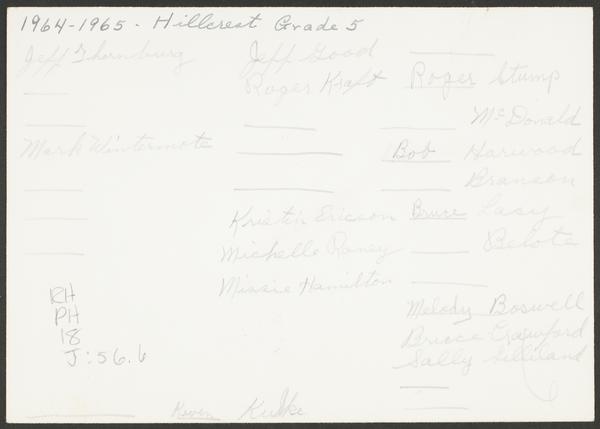 1964-1965 - Hillcrest Grade 5
Jeff Thornburg
Mark Wintermote
RH
PH
18
J:56.6
Jeff Good
Roger Kraft
Kristin Ericson
Michelle Raney
Missie Hamilton
Keven Kuhke
Roger Stump
McDonald
Bob Harwood
Branson
Bruce Lasy
Belote
Melody Boswell
Bruce Crawford
Sally Gilliland